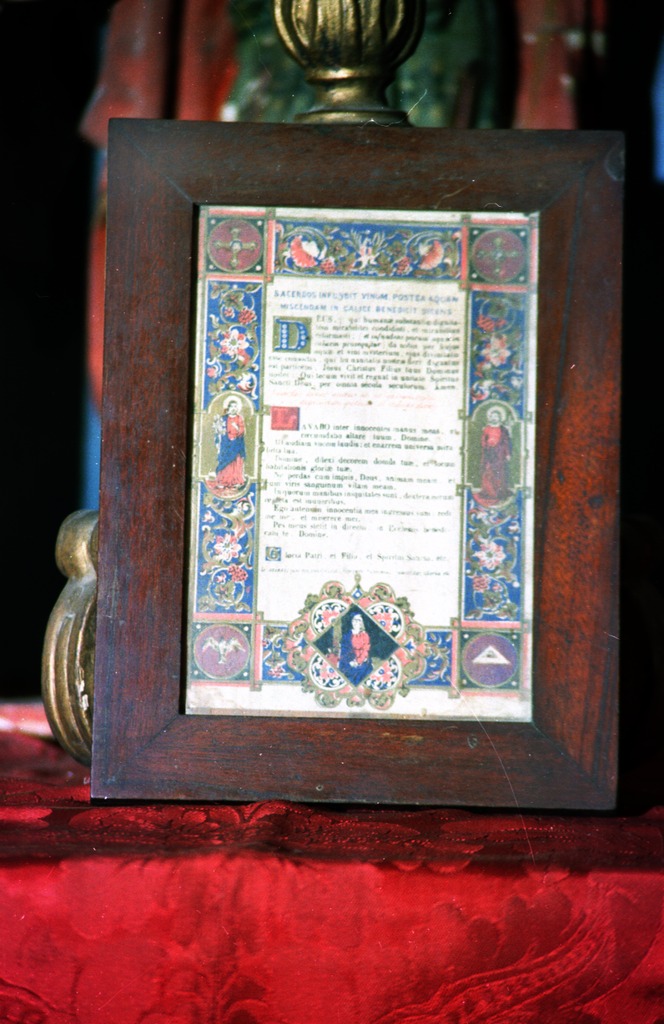 SACERDOS INFUNDIT VINUM, POSTEA AQUAM
MISCENDAM IN CALICE BENEDICIT DICENS
DEUS, qui humanæ substantiæ dignita-
tem mirabiliter condidisti, et mirabilius
reformasti: da nobis per hujus
aquæ et vini mysterium, ejus divinitatis
esse consortes, qui humanitatis nostræ fieri dignatus
est particeps, Jesus Christus Filius tuus Dominus
noster: Qui tecum vivit et regnat in unitate Spiritus
Sancti Deus, per omnia sæcula sæculorum. Amen.
LAVABO inter innocentes manus meas, et
circumdabo altare tuum, Domine.
Ut audiam vocem laudis, et enarrem universa mira-
bilia tua.
Domine, dilexi decorem domus tuæ, et locum
habitationis gloriæ tuæ.
Ne perdas cum impiis, Deus, animam meam, et
cum viris sanguinum vitam meam.
In quorum manibus iniquitates sunt, dextera eorum
repleta est muneribus.
Ego autem in innocentia mea ingressus sum, redi-
me me, et miserere mei.
Pes meus stetit in directo, in Ecclesiis benedi-
cam te, Domine.
Gloria Patri, et Filio, et Spiritui Sancto, etc.